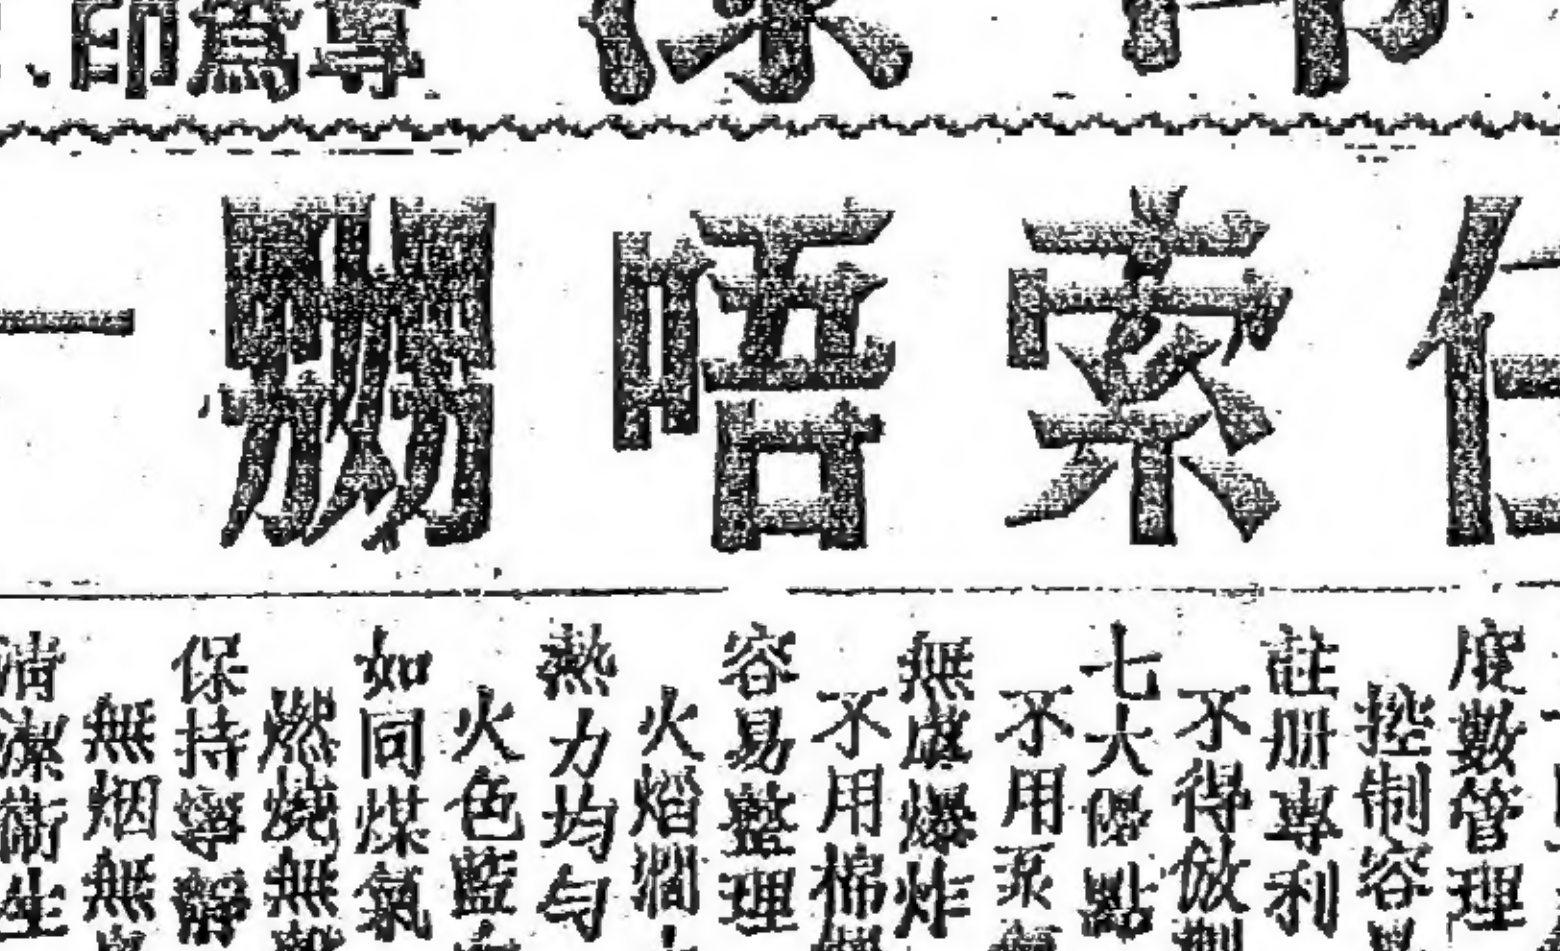 專爲印
索唔嬲一
度數管理
控制容
註册專利
不得倣製
七大優點
不用泵
無慮爆炸
不用棉
容易整理
火熖
熱力均勻
火色藍
如同煤氣
燃燒無
保持寧靜
無烟無
清潔衛生